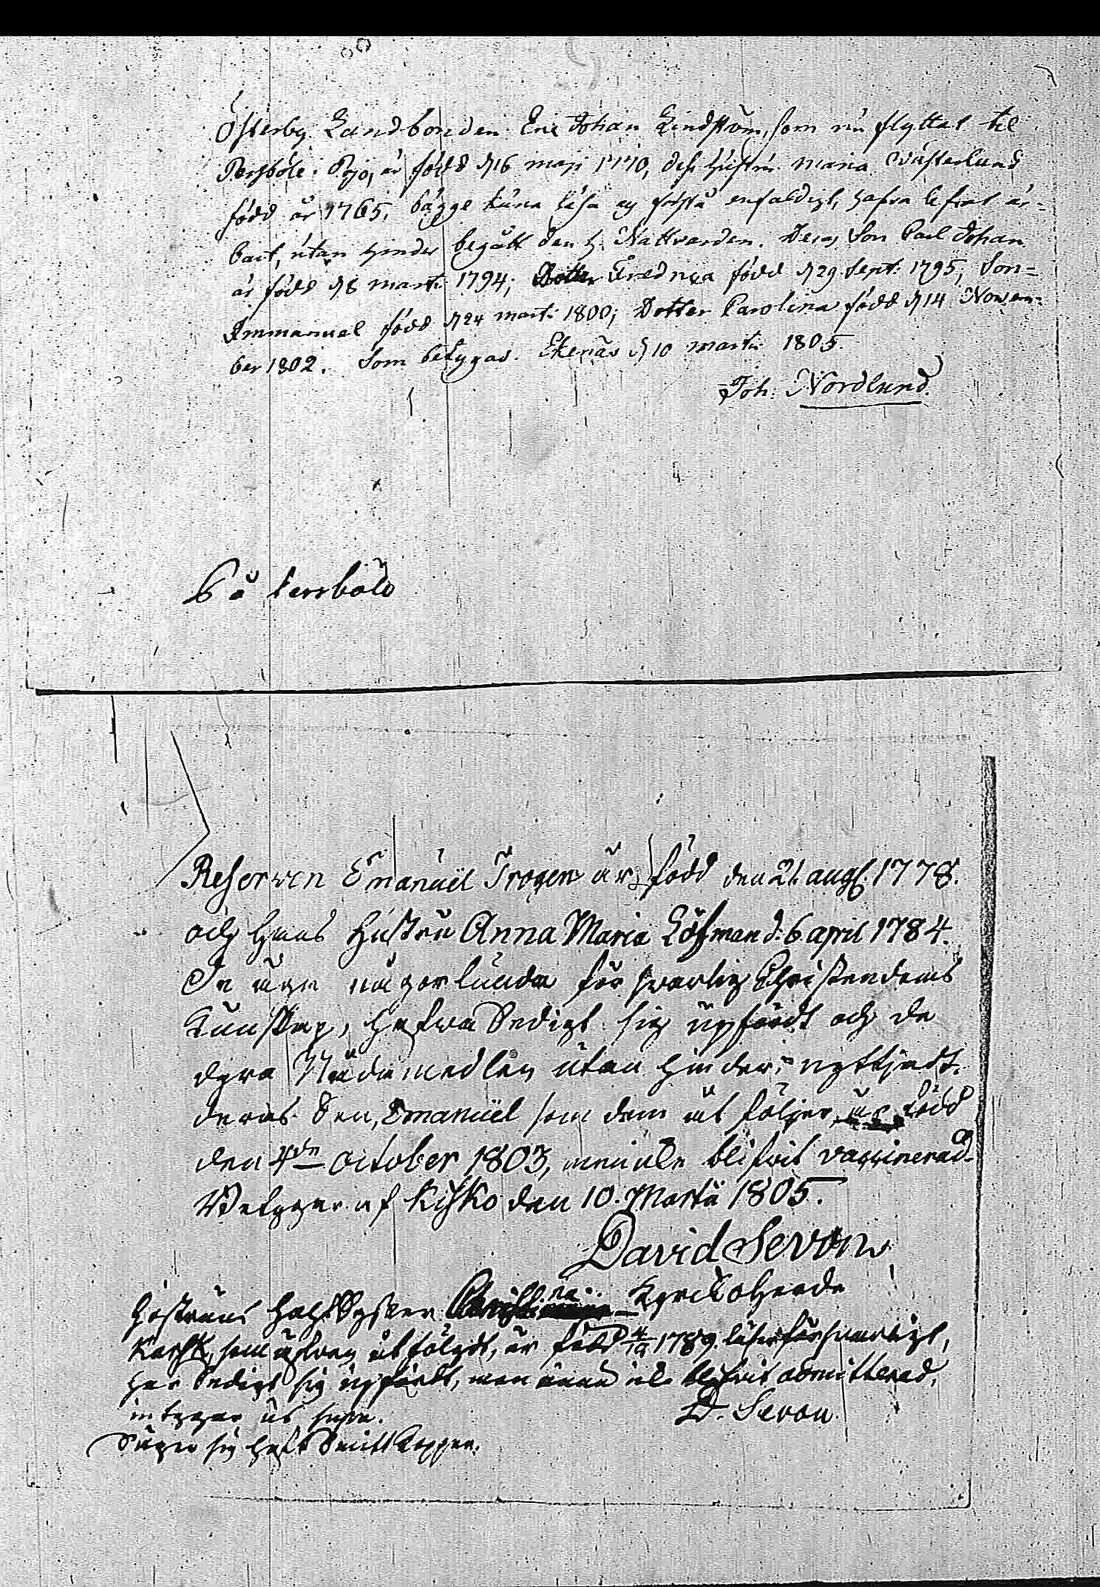 Österby Landbonden Eric Johan Lindström, som nu flyttat til
Persböle i Pojo, är född d 16 maji 1770, dess hustru Maria Wästerlund
född år 1765, bägge kuna läsa og förstå enfaldigt, hafva lefvat är-
bart, utan hinder begått den H. Nattvarden. Deras Son Carl Johan
är född d 8 marti 1794; Fredrica född d 29 Sept: 1795; Son
Immanuel född d 24 marti 1800; Dotter Carolina född d 14 Novem-
ber 1802. Som betygas. Ekenäs d 10 martii 1805
Joh: Nordlund.
På
Reserven Emanuel Trogen är född den 21. aug. 1778.
och hans Hustru Anna Maria Löfman d. 6 april 1784.
De äga någorlunda försvarlig Christendoms
Kunskap, hafva Sedigt sig upfördt och de
dyra Nådemedlen utan hinder nyttjadt.
deras Son, Emanuel som dem åtföljer, är född
den 4de october 1803, men icke blifvit vaccinerad.
Betygar af Kisko den 10. Martii 1805.
David Sevon
Kyrckoherde
Hustruns Halfsyster
som åtföljdt, är född 1789. läser försvarligt,
har Sedigt sig upfördt, men ännu ick blifvit admitterad,
intygar
D. Sevon
Säger sig haft Smittkoppor.